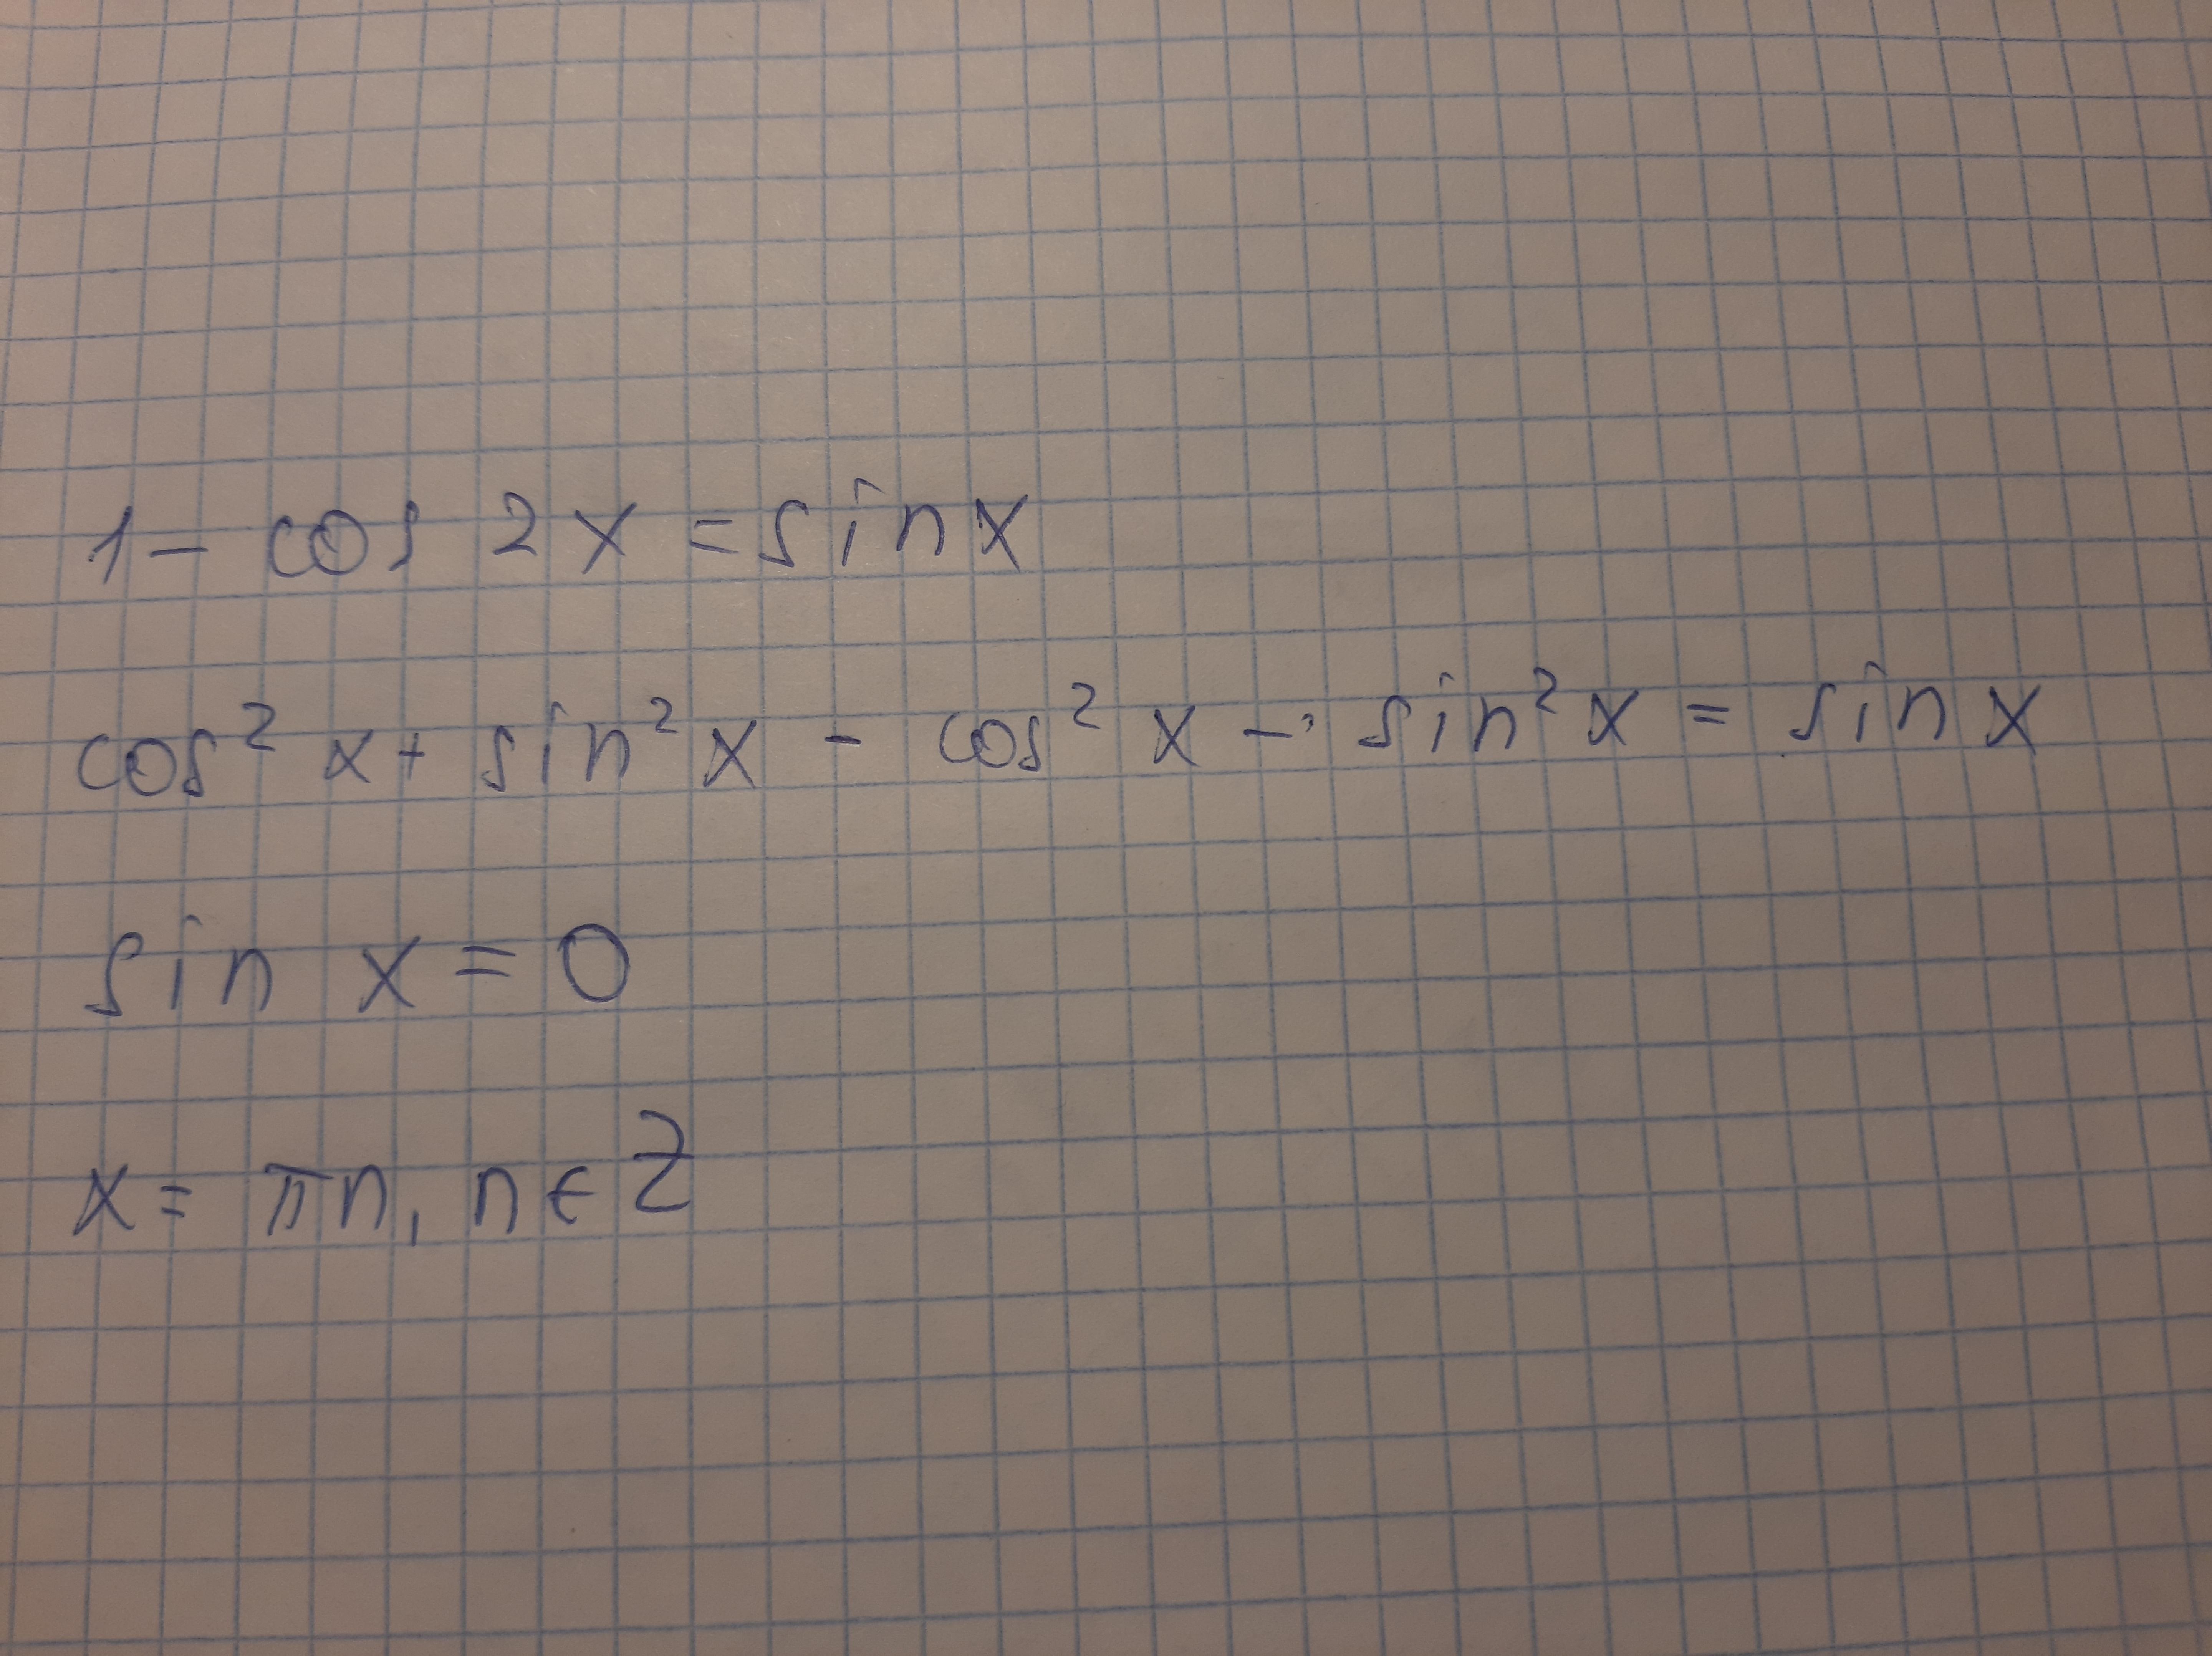 1 - cos 2x = sin x
cos² x + sin² x - cos² x - sin² x = sin x
sin x = 0
x = πn, n ∈ Z